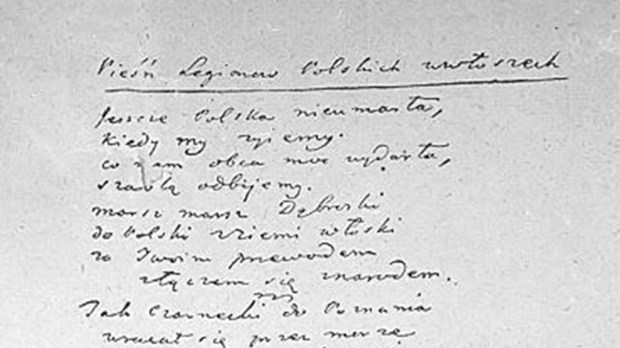 Pieśń Legionow Polskich wwłoszech
Jeszcze Polska nieumarła,
kiedy my żyiemy.
co nam obca moc wydarła,
szablą odbijemy.
marsz marsz Dąbroski
do Polski z ziemi włoski
za Twoim przewodem
złączem się znarodem.
Jak Czarnecki do Poznania
wracał się przez morze